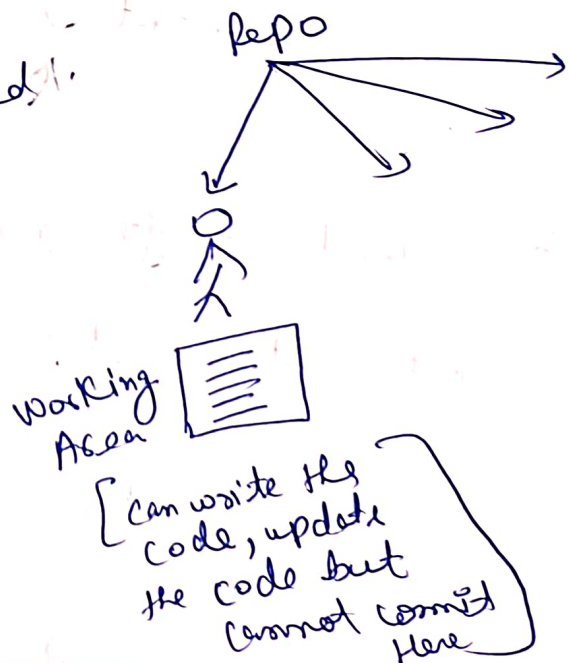 Repo
d.
Working
Area
[can write the
code, update
the code but
cannot commit
Here]